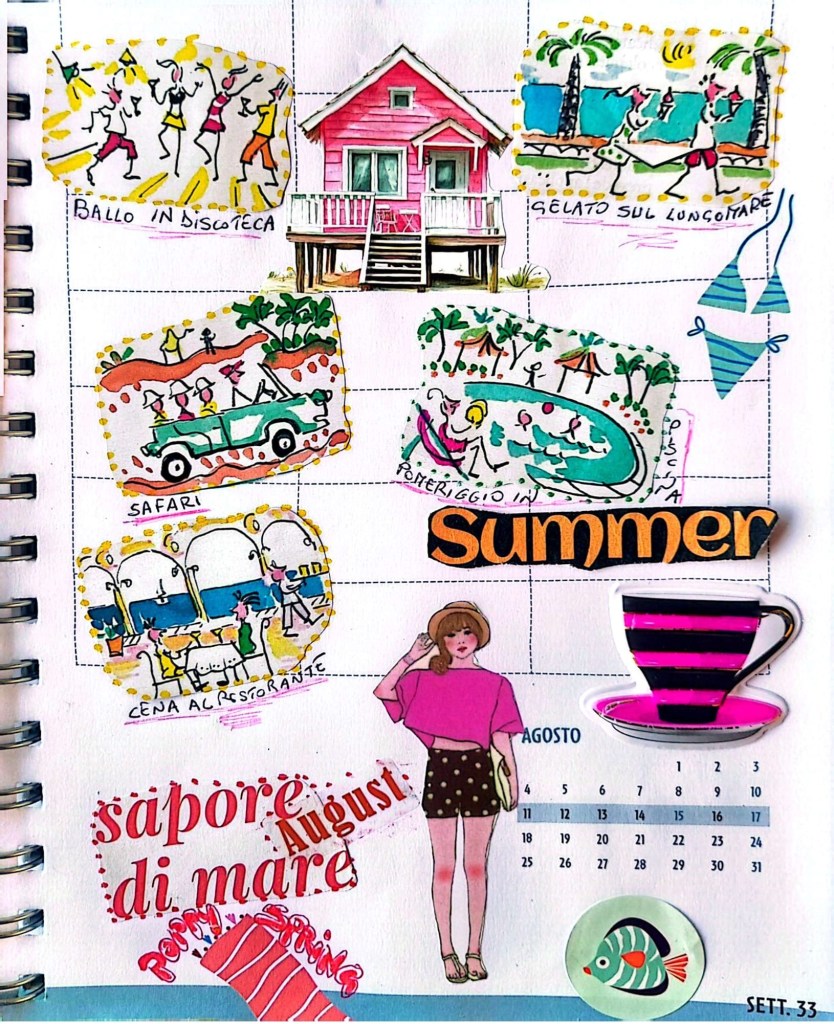 BALLO IN DISCOTECA
GELATO SUL LUNGOMARE
SAFARI
POMERIGGIO IN
PISCINA
Summer
CENA AL RISTORANTE
sapore
August
di mare
POPPY SPRING
AGOSTO
1 2 3
4 5 6 7 8 9 10
11 12 13 14 15 16 17
18 19 20 21 22 23 24
25 26 27 28 29 30 31
SETT. 33